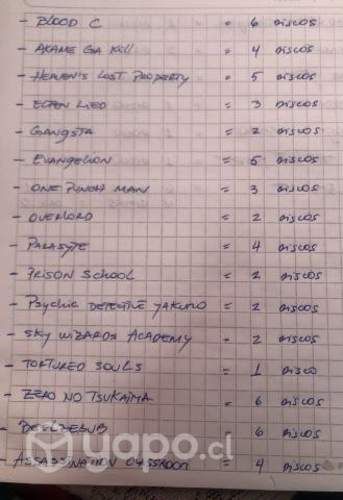 - BLOOD C = 6 DISCOS
- AKAME GA KILL = 4 DISCOS
- HEAVEN'S LOST PROPERTY = 5 DISCOS
- ELFEN LIED = 3 DISCOS
- GANGSTA = 2 DISCOS
- EVANGELION = 5 DISCOS
- ONE PUNCH MAN = 3 DISCOS
- OVERLORD = 2 DISCOS
- PARASYTE = 4 DISCOS
- PRISON SCHOOL = 2 DISCOS
- PSYCHIC DETECTIVE YAKUMO = 2 DISCOS
- SKY WIZARDS ACADEMY = 2 DISCOS
- TORTURED SOULS = 1 DISCO
- ZERO NO TSUKAIMA = 6 DISCOS
- BEELZEBUB = 6 DISCOS
yapo.cl
- ASSASSINATION CLASSROOM = 4 DISCOS